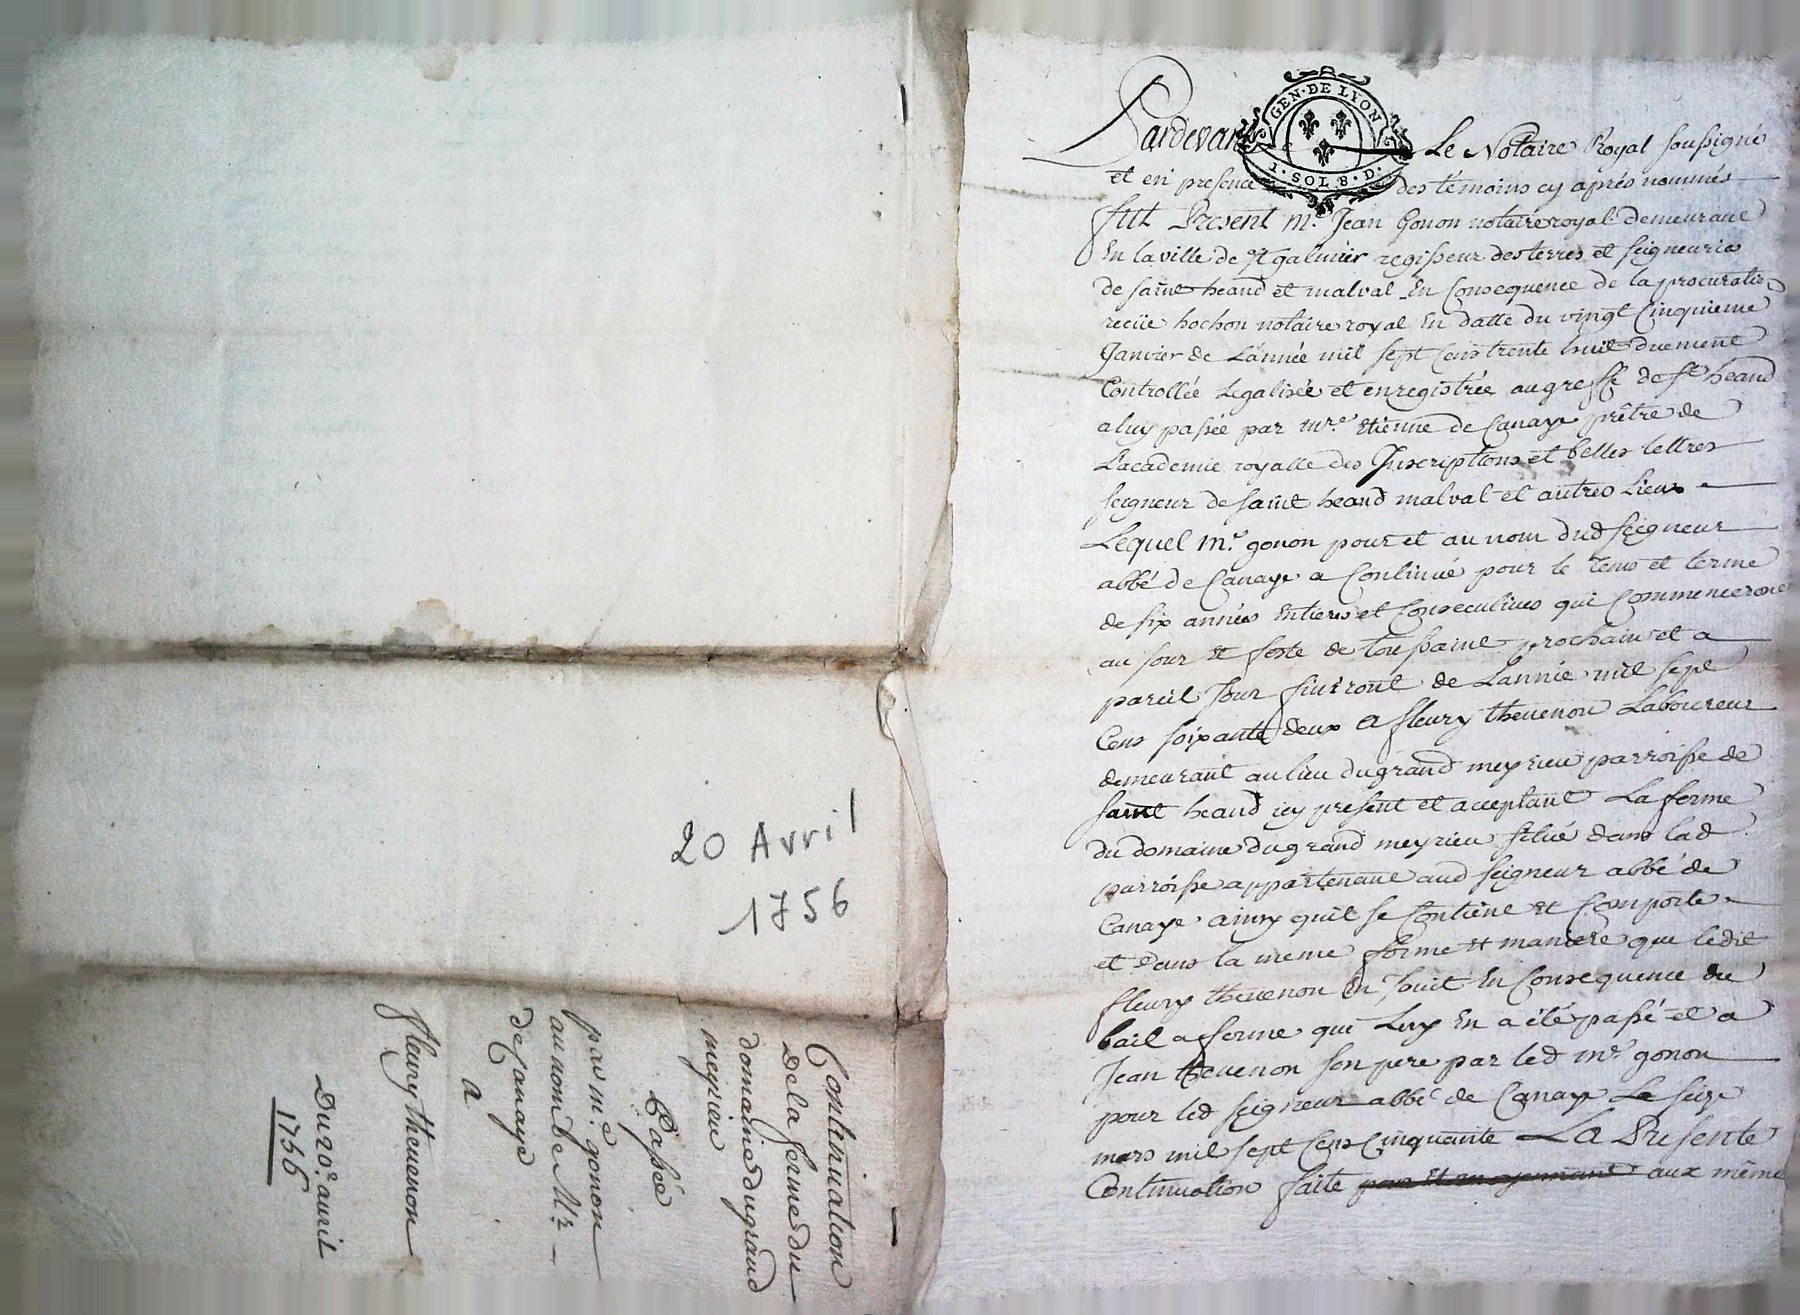 20 Avril
1756
Continuation
De la ferme du
domaine du grand
meyrieu
Passée
par me. gonon
au nom de Mr.
de Canaye
a
fleury thevenon
Du 20e. avril
1756
GEN. DE LYON
1. SOL 8. D.
Pardevant Le Notaire Royal soussigné
et en presence des témoins cy aprés nommés
fut Present me. Jean Gonon notaire royal demeurant
En la ville de St galmier regisseur des terres et seigneuries
de saint heand et malval En Consequence de la procuration
recüe hochon notaire royal En datte du vingt Cinquieme
Janvier de L'année mil sept Cens trente huit duement
Controllée Legalisée et enregistrée au greffe de St. heand
a luy passée par mre. Etienne de Canaye prêtre de
L'academie royalle des Inscriptions et belles lettres
seigneur de saint heand malval et autres Lieux
Lequel me. gonon pour et au nom dud seigneur
abbé de Canaye a Continué pour le tems et terme
de six années Entieres et Consecutives qui Commenceront
au jour et feste de toussaint prochain et a
pareil Jour finiront de L'année mil sept
Cens soixante deux a fleury thevenon Laboureur
demeurant au lieu du grand meyrieu parroisse de
saint heand icy present et acceptant La ferme
du domaine du grand meyrieu situé dans lad
parroisse appartenant aud seigneur abbé de
Canaye ainsy quil se Contient et Comporte
et dans la meme forme et maniere que ledit
fleury thevenon En Jouit En Consequence du
bail a ferme qui Luy En a été passé et a
Jean thevenon son pere par led me. gonon
pour led seigneur abbé de Canaye Le seize
mars mil sept Cens Cinquante La Presente
Continuation faite aux même